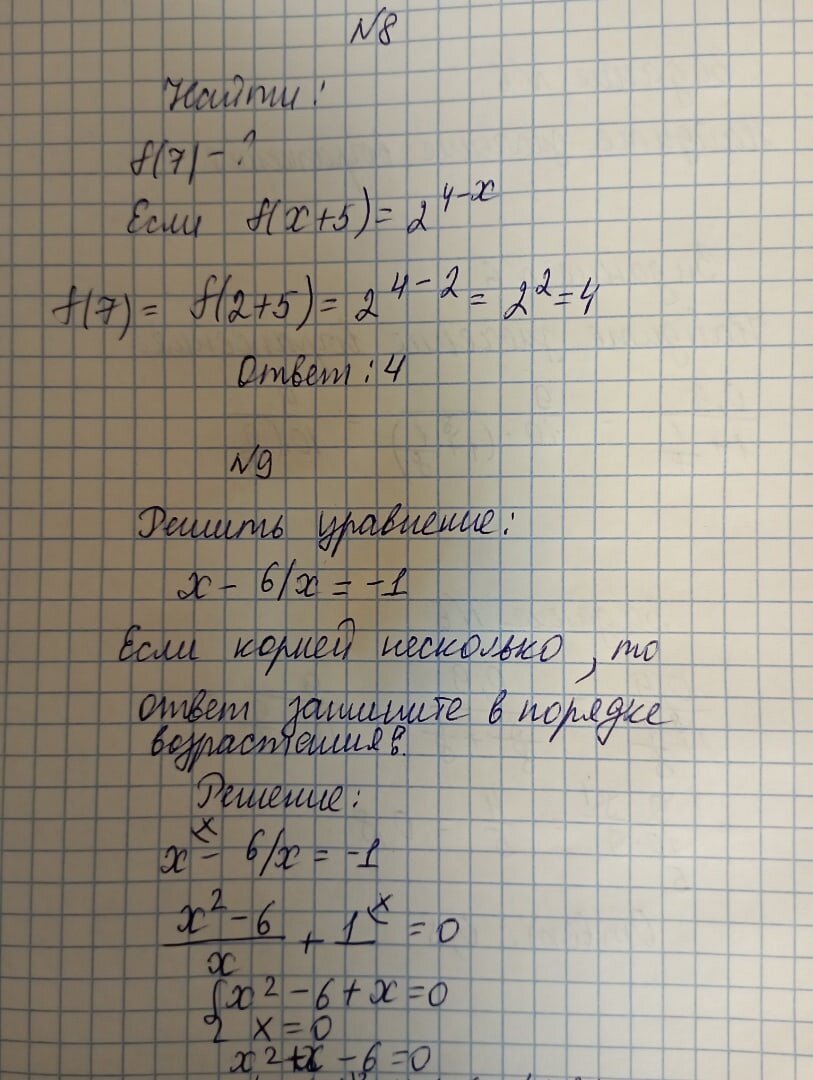 №8
Найти:
f(7) - ?
Если f(x+5) = 2^{4-x}
f(7) = f(2+5) = 2^{4-2} = 2^2 = 4
Ответ: 4
№9
Решить уравнение:
x - 6/x = -1
Если корней несколько, то
ответ запишите в порядке
возрастания.
Решение:
x - 6/x = -1
\frac{x^2-6}{x} + 1 = 0
{x^2 - 6 + x = 0
x = 0
x^2 + x - 6 = 0